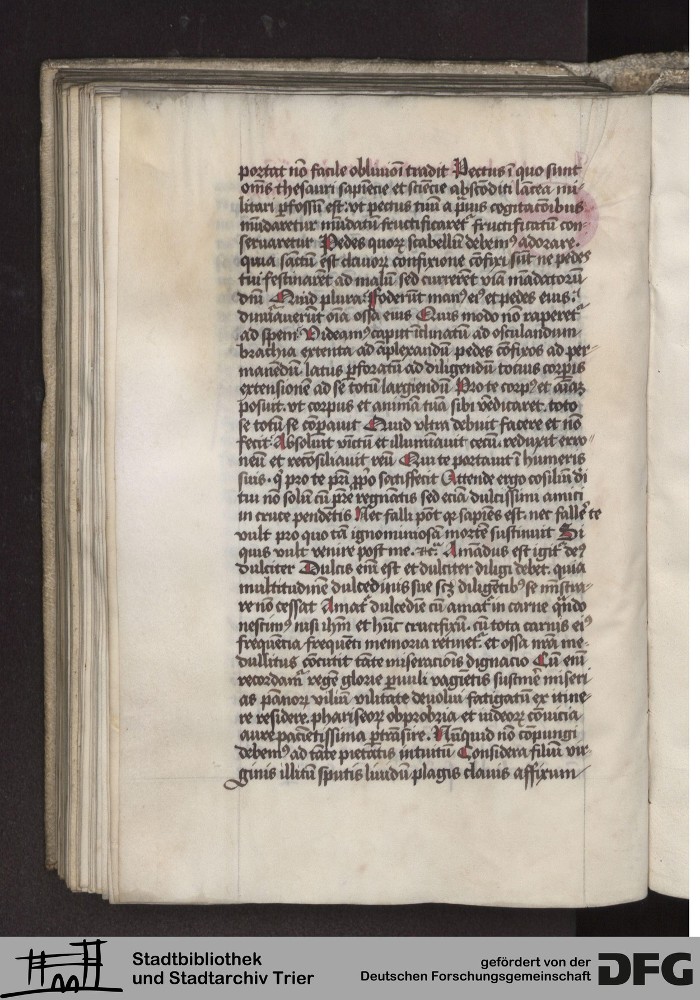 portat nō facile obliuioi tradit Pectus ī quo sunt
om̄s thesauri sapiēcie et sciēcie abscōditi lācea mi-
litari p̄fossū est. vt pectus tuū a prauis cogitacōibus
mūdaretur mūdatū fructificaret᷑ fructificatū con-
seruaretur Pedes quoꝝ scabellū debemꝰ adorare.
quia sāctū est clauoꝝ confixione cōfixi sūt ne pedes
tui festinarēt ad malū sed currerēt viā mādatorū
dn̄i Quid plura. Foderūt manꝰ eiꝰ et pedes eius.
dinūauerūt oīa ossa eius Quis modo nō raperet᷑
ad spem Videamꝰ caput īclinatū ad osculandum
brachia extenta ad āplexandū pedes cōfixos ad per-
manēdū latus p̄foratū ad diligendū tocius corp̄is
extensionē ad se totū largiendū Pro te corpꝰ et aīaꝫ
posuit. vt corpus et animā tuā sibi vēdicaret. toto
se totū se cōpauit Quid vltra debuit facere et nō
fecit Absoluit vīctū et illumīauit cecū. reduxit erro-
neū et recōsiliauit reū Qui te portauit ī humeris
suis. qͥ pro te pr̄i p̄p̄o satisfecit Attende ergo cōsiliū dī
tui nō solū cū pr̄e regnātis sed eciā dulcissimi amici
in cruce pendētis Nec falli pōt qꝛ sapiēs est. nec fallēˀ te
vult pro quo tā ignominiosā mortē sustinuit Si
quis vult venire post me. ⁊cᷓ. Amādus est igit᷑ deꝰ
dulciter Dulcis eīn est et dulciter diligi debet. quia
multitudinē dulcedinis sue scꝫ diligētibꝰ se mīstra-
re nō cessat Amat᷑ dulcedīe cū amat᷑ in carne qn̄do
nescimꝰ nisi ihm̄ et hūc crucifixū. cū tota carnis eiꝰ
frequētia frequēti memoria retinet᷑ et ossa nr̄a me-
dullitus cōcutit tāte miseracionis dignacio Cū eīn
recordam᷑ regē glorie p̄uuli vagiētis sustinēˀ miseri
as pānoꝝ viliū vilitate deuolui fatigatū ex itine-
re residere. phariseoꝝ obprobria et iudeoꝝ cōuicia
aure paciētissima p̄trāsire. Nūnquid nō cōpungi
debemꝰ ad tāte pietātis intuitū Considera filiū vir-
ginis illitū sputis liuidū plagis clauis affixum
Stadtbibliothek
und Stadtarchiv Trier
gefördert von der
Deutschen Forschungsgemeinschaft
DFG